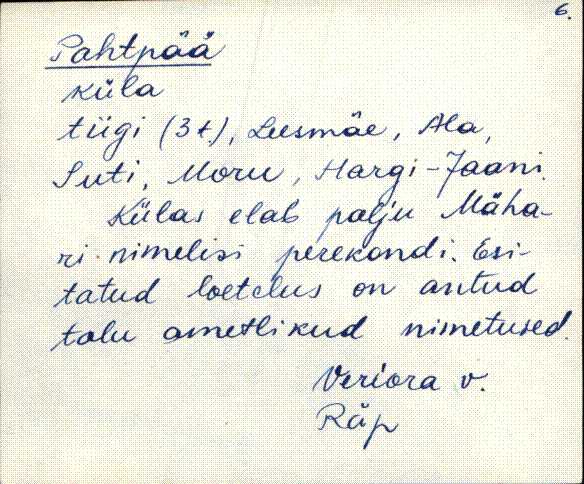 6.
Pahtpää
küla
tiigi (3 t.), Leesmäe, Ala,
Suti, Moru, Hargi-Jaani.
Külas elab palju Mäha-
ri-nimelisi perekondi. Esi-
tatud loetelus on antud
talu ametlikud nimetused.
Veriora v.
Räp